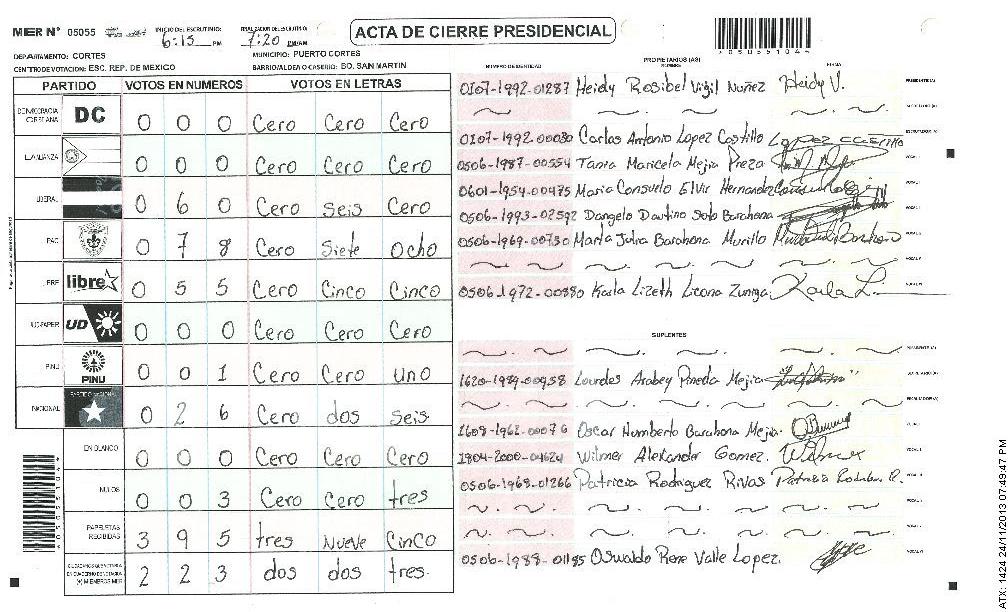 MER Nº 05055 INICIO DEL ESCRUTINIO: 6:15 PM FINALIZACION DEL ESCRUTINIO: 7:20 PM/AM
ACTA DE CIERRE PRESIDENCIAL
DEPARTAMENTO: CORTES MUNICIPIO: PUERTO CORTES
CENTRO DE VOTACION: ESC. REP. DE MEXICO BARRIO/ALDEA O CASERIO: BO. SAN MARTIN
PARTIDO VOTOS EN NUMEROS VOTOS EN LETRAS
DEMOCRACIA CRISTIANA DC 0 0 0 Cero Cero Cero
ALIANZA 0 0 0 Cero Cero Cero
LIBERAL 0 6 0 Cero Seis Cero
PAC 0 7 8 Cero Siete Ocho
LIBRE libre 0 5 5 Cero Cinco Cinco
UD-FAPER UD 0 0 0 Cero Cero Cero
PINU PINU 0 0 1 Cero Cero uno
NACIONAL 0 2 6 Cero dos seis
EN BLANCO 0 0 0 Cero Cero Cero
NULOS 0 0 3 Cero Cero tres
PAPELETAS RECIBIDAS 3 9 5 tres Nueve Cinco
2 2 3 dos dos tres.
PROPIETARIOS (AS)
NUMERO DE IDENTIDAD NOMBRE FIRMA
0107-1992-01287 Heidy Rosibel Vigil Nuñez Heidy V.
0107-1992-00080 Carlos Antonio Lopez Castillo
0506-1987-00554 Tania Maricela Mejia Preza
0601-1954-00475 Maria Consuelo Elvir Hernandez
0506-1993-02592 Dangelo Soto Barahona
0506-1969-00730 Marta Julia Barahona Murillo
0506-1972-00880 Karla Lizeth Licona Zuniga Karla L.
SUPLENTES
1620-1989-00458 Lourdes Arabey Pineda Mejia
1609-1962-00076 Oscar Humberto Barahona Mejia
1804-2000-04624 Wilmer Alexander Gomez. Wilmer
0506-1968-01266 Patricia Rodriguez Rivas
0506-1988-01185 Oswaldo Rene Valle Lopez.
ATX: 1424 24/11/2013 07:49:47 PM